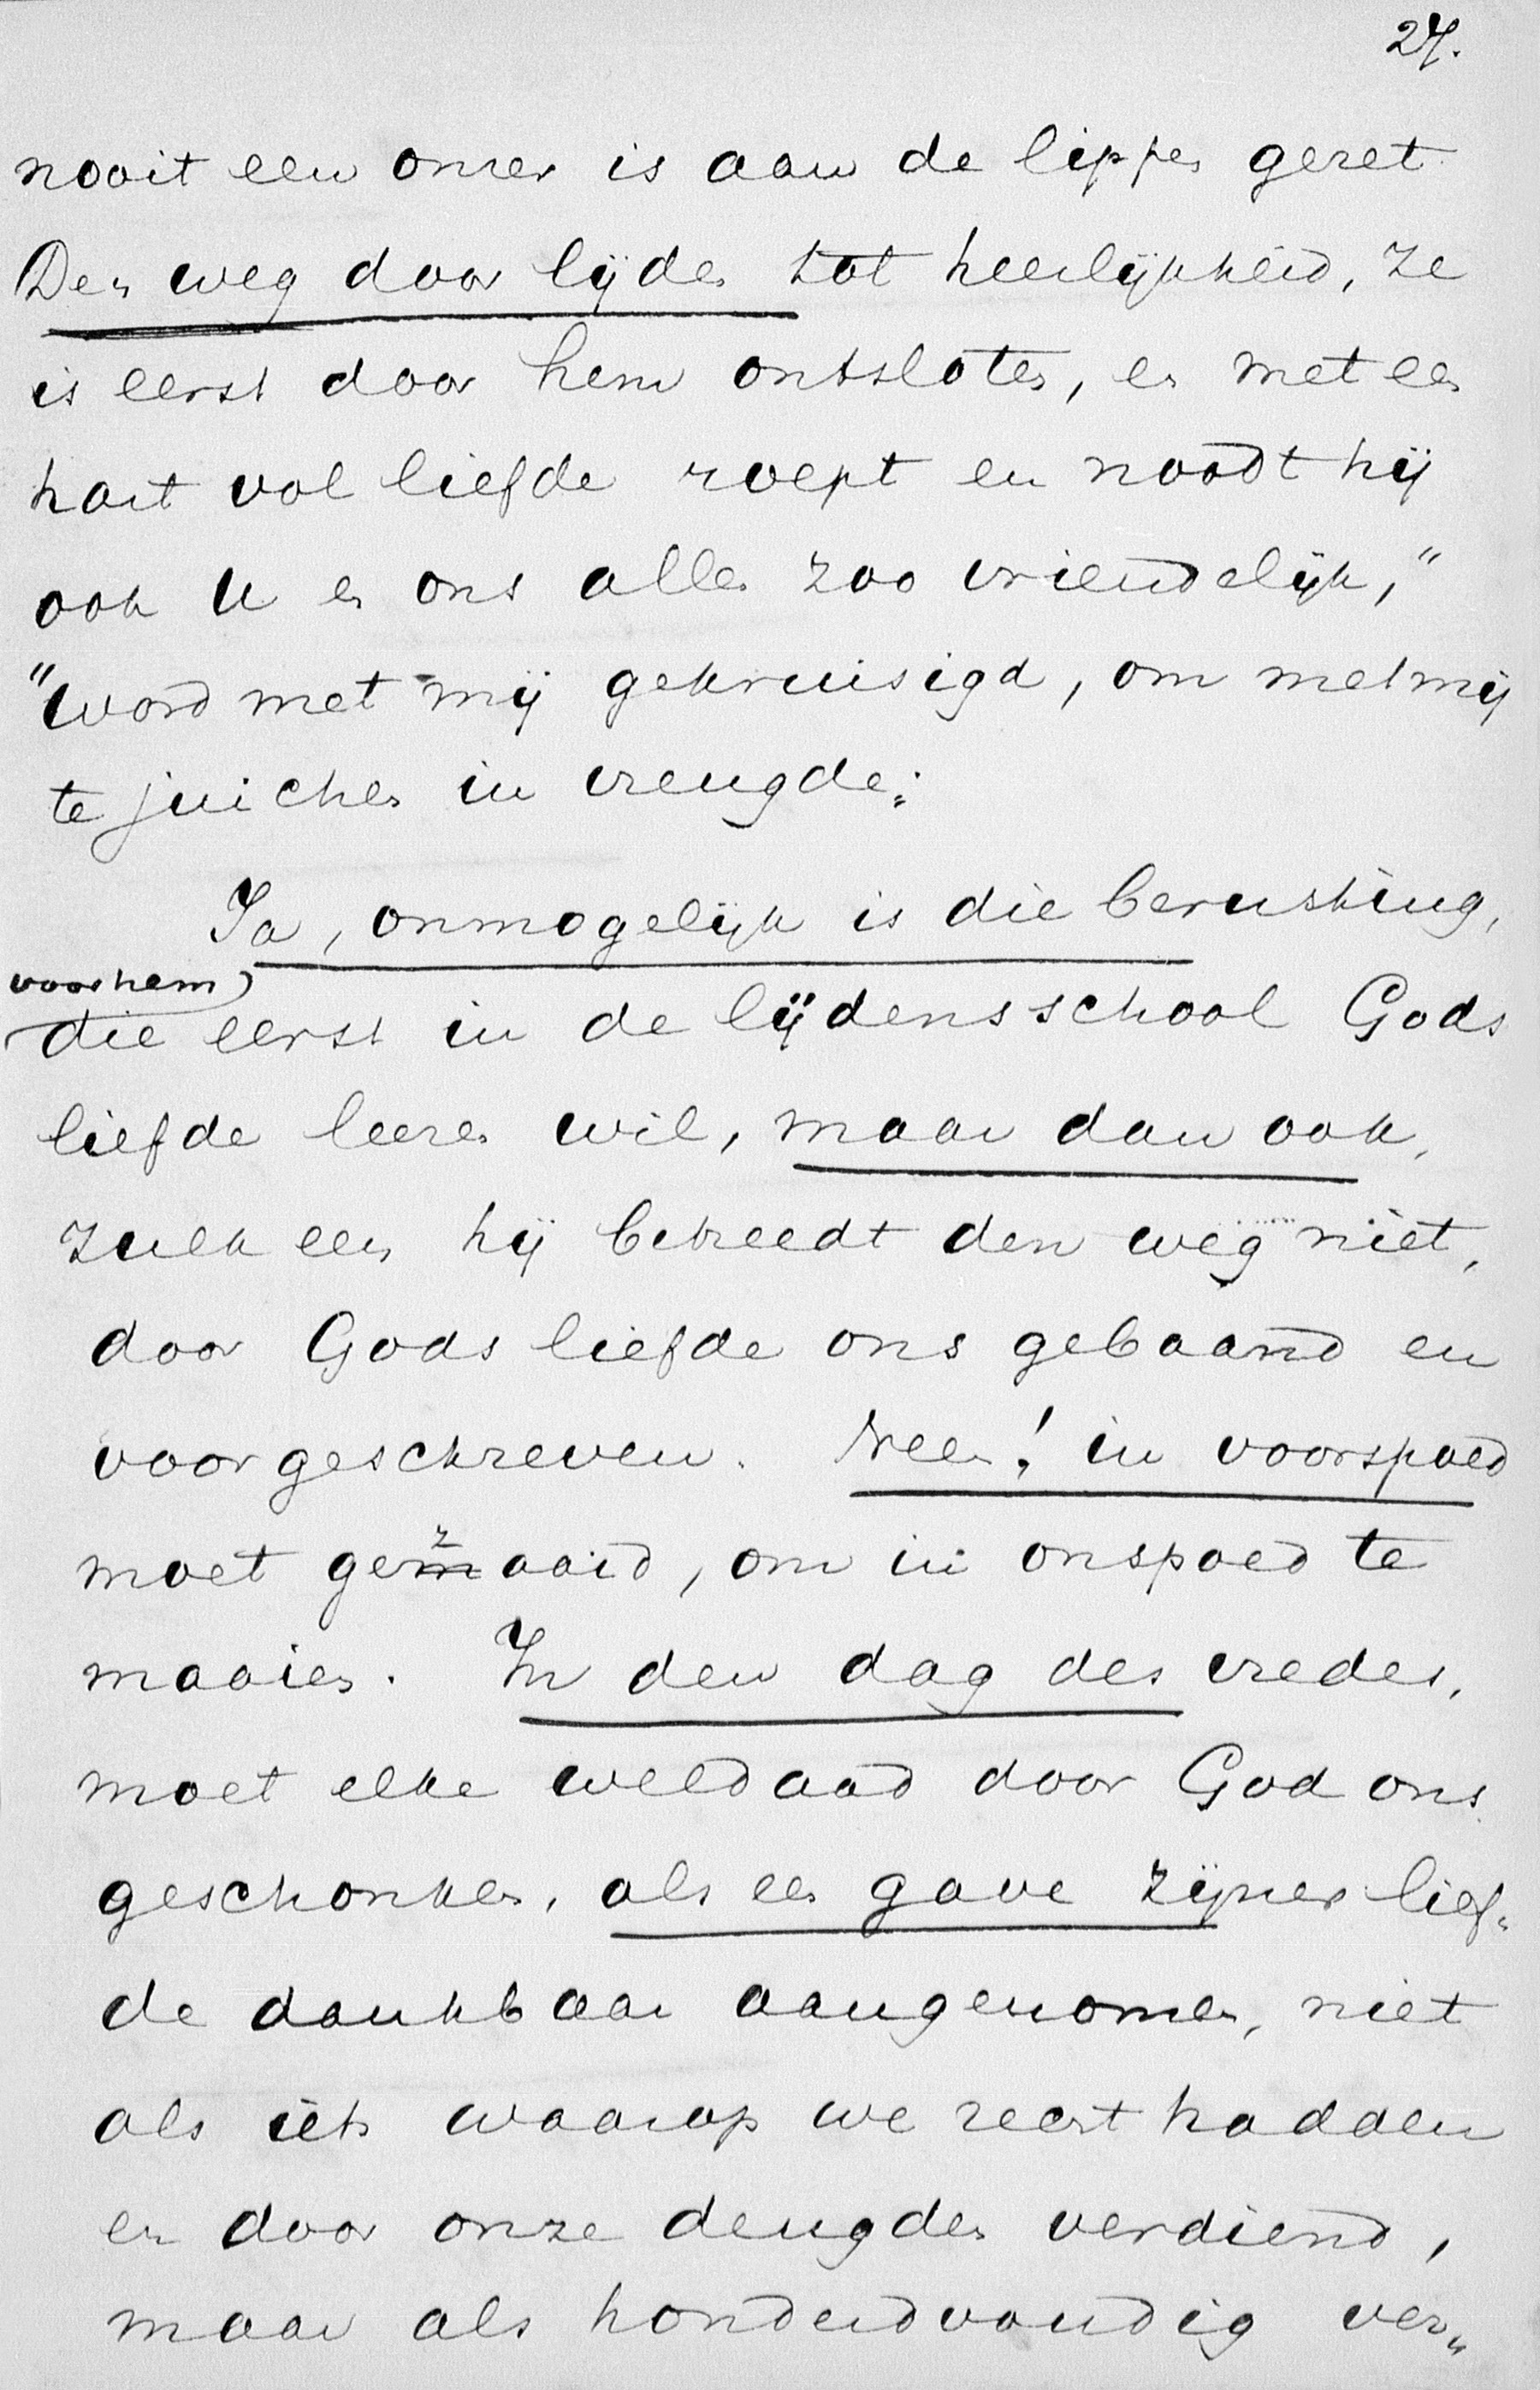 27.
nooit een onzer is aan de lippen gezet
Den weg door lijden tot heerlijkheid, ze
is eerst door hem ontsloten, en met een
hart vol liefde roept en noodt hij
ook U en ons allen zoo vriendelijk,"
"Word met mij gekruisigd, om met mij
te juichen in vreugde:
Ja, onmogelijk is die berusting,
voor hem
die eerst in de lijdensschool Gods
liefde leeren wil, maar dan ook,
zulk een hij betreedt den weg niet,
door Gods liefde ons gebaand en
voorgeschreven. Neen! in voorspoed
moet gezaaid, om in onspoed te
maaien. In den dag des vredes,
moet elke weldaad door God ons
geschonken, als een gave zijner lief-
de dankbaar aangenomen, niet
als iets waarop we recht hadden
en door onze deugden verdiend,
maar als honderdvoudig ver„